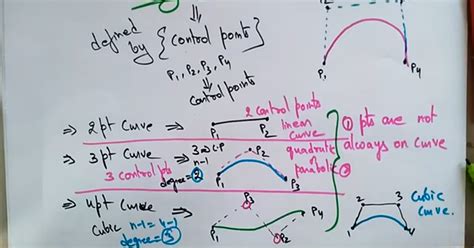 defined by { control points }
P1, P2, P3, P4
control points
P1 P4
⇒ 2pt Curve ⇒ P1 P2 2 control points linear curve
⇒ 3pt Curve ⇒ 3 P2 quadratic
3 control pts n-1 degree=2 P1 P3 parabolic
⇒ 4pt Curve ⇒ P3 P4
cubic n-1=4-1 degree=3 P1 P2
① pts are not always on curve
②
2 3 cubic curve.
P1 P4